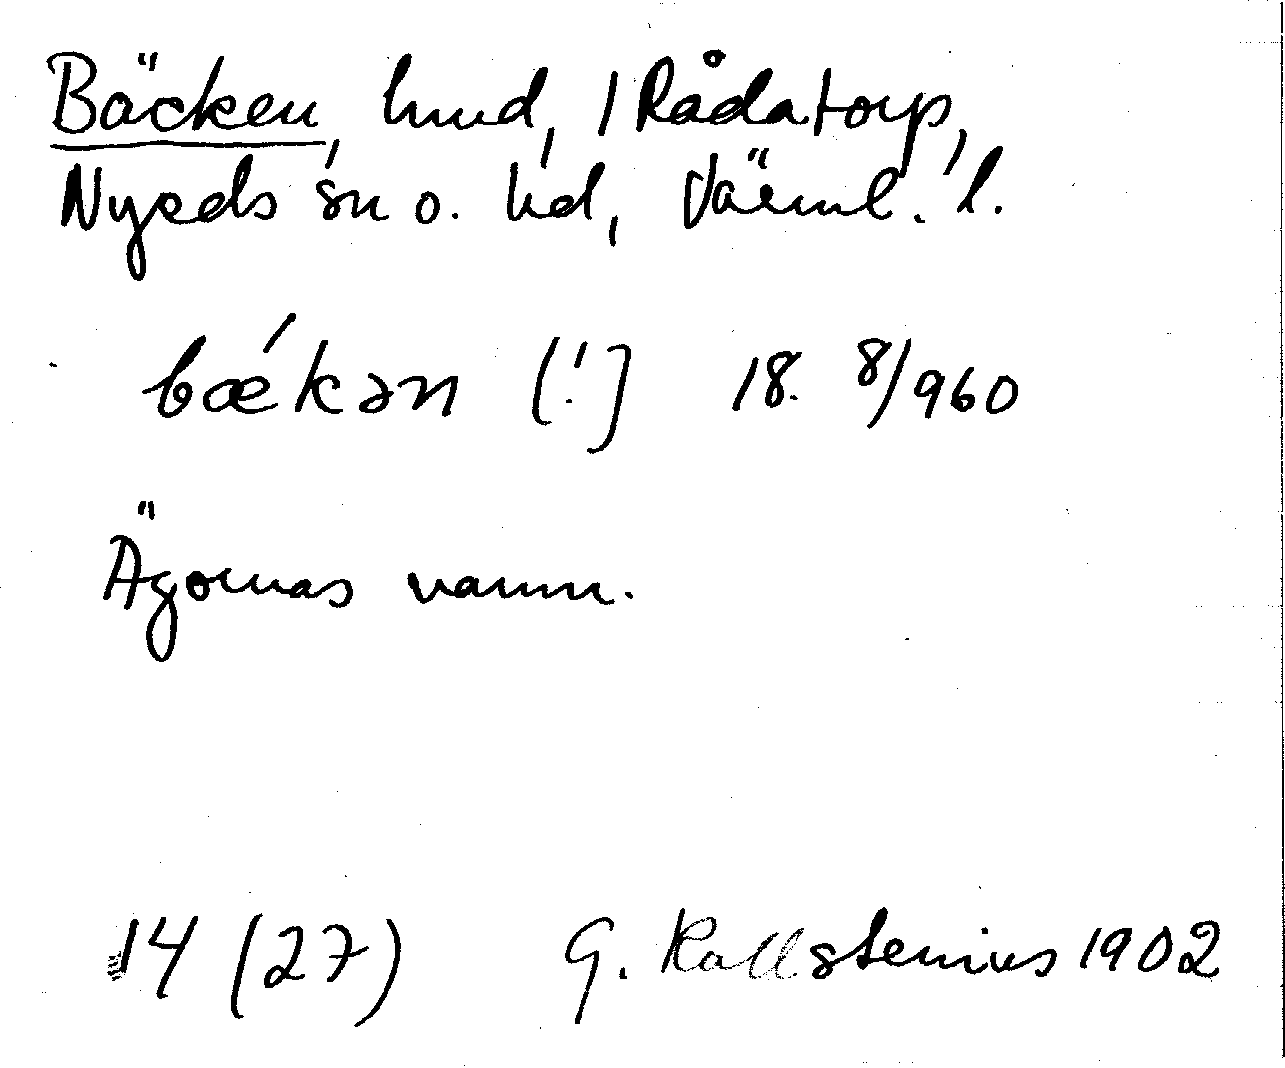 Bäcken, hmd, 1 Rådatorp,
Nyeds sn o. hd, Värml. l.
bǽkən [!] 18. 8/960
Ägornas namn.
14 (27) G. Kallstenius 1902